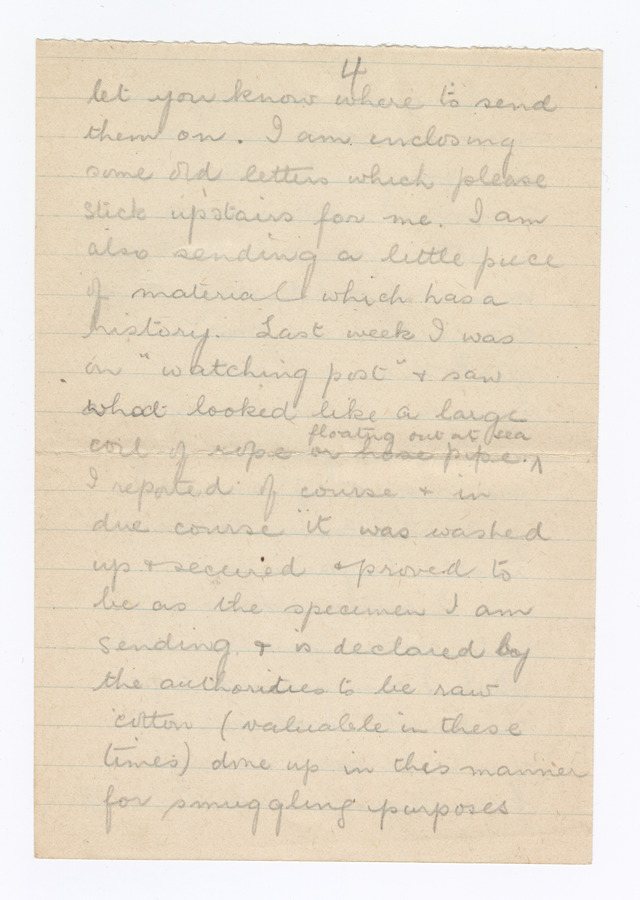 4
let you know where to send
them on. I am enclosing
some old letters which please
stick upstairs for me. I am
also sending a little piece
of material which has a
history. Last week I was
on "watching post" & saw
what looked like a large
floating out at sea
coil of rope or hose pipe.
I reported of course & in
due course it was washed
up & secured & proved to
be as the specimen I am
sending & is declared by
the authorities to be raw
cotton (valuable in these
times) done up in this manner
for smuggling purposes